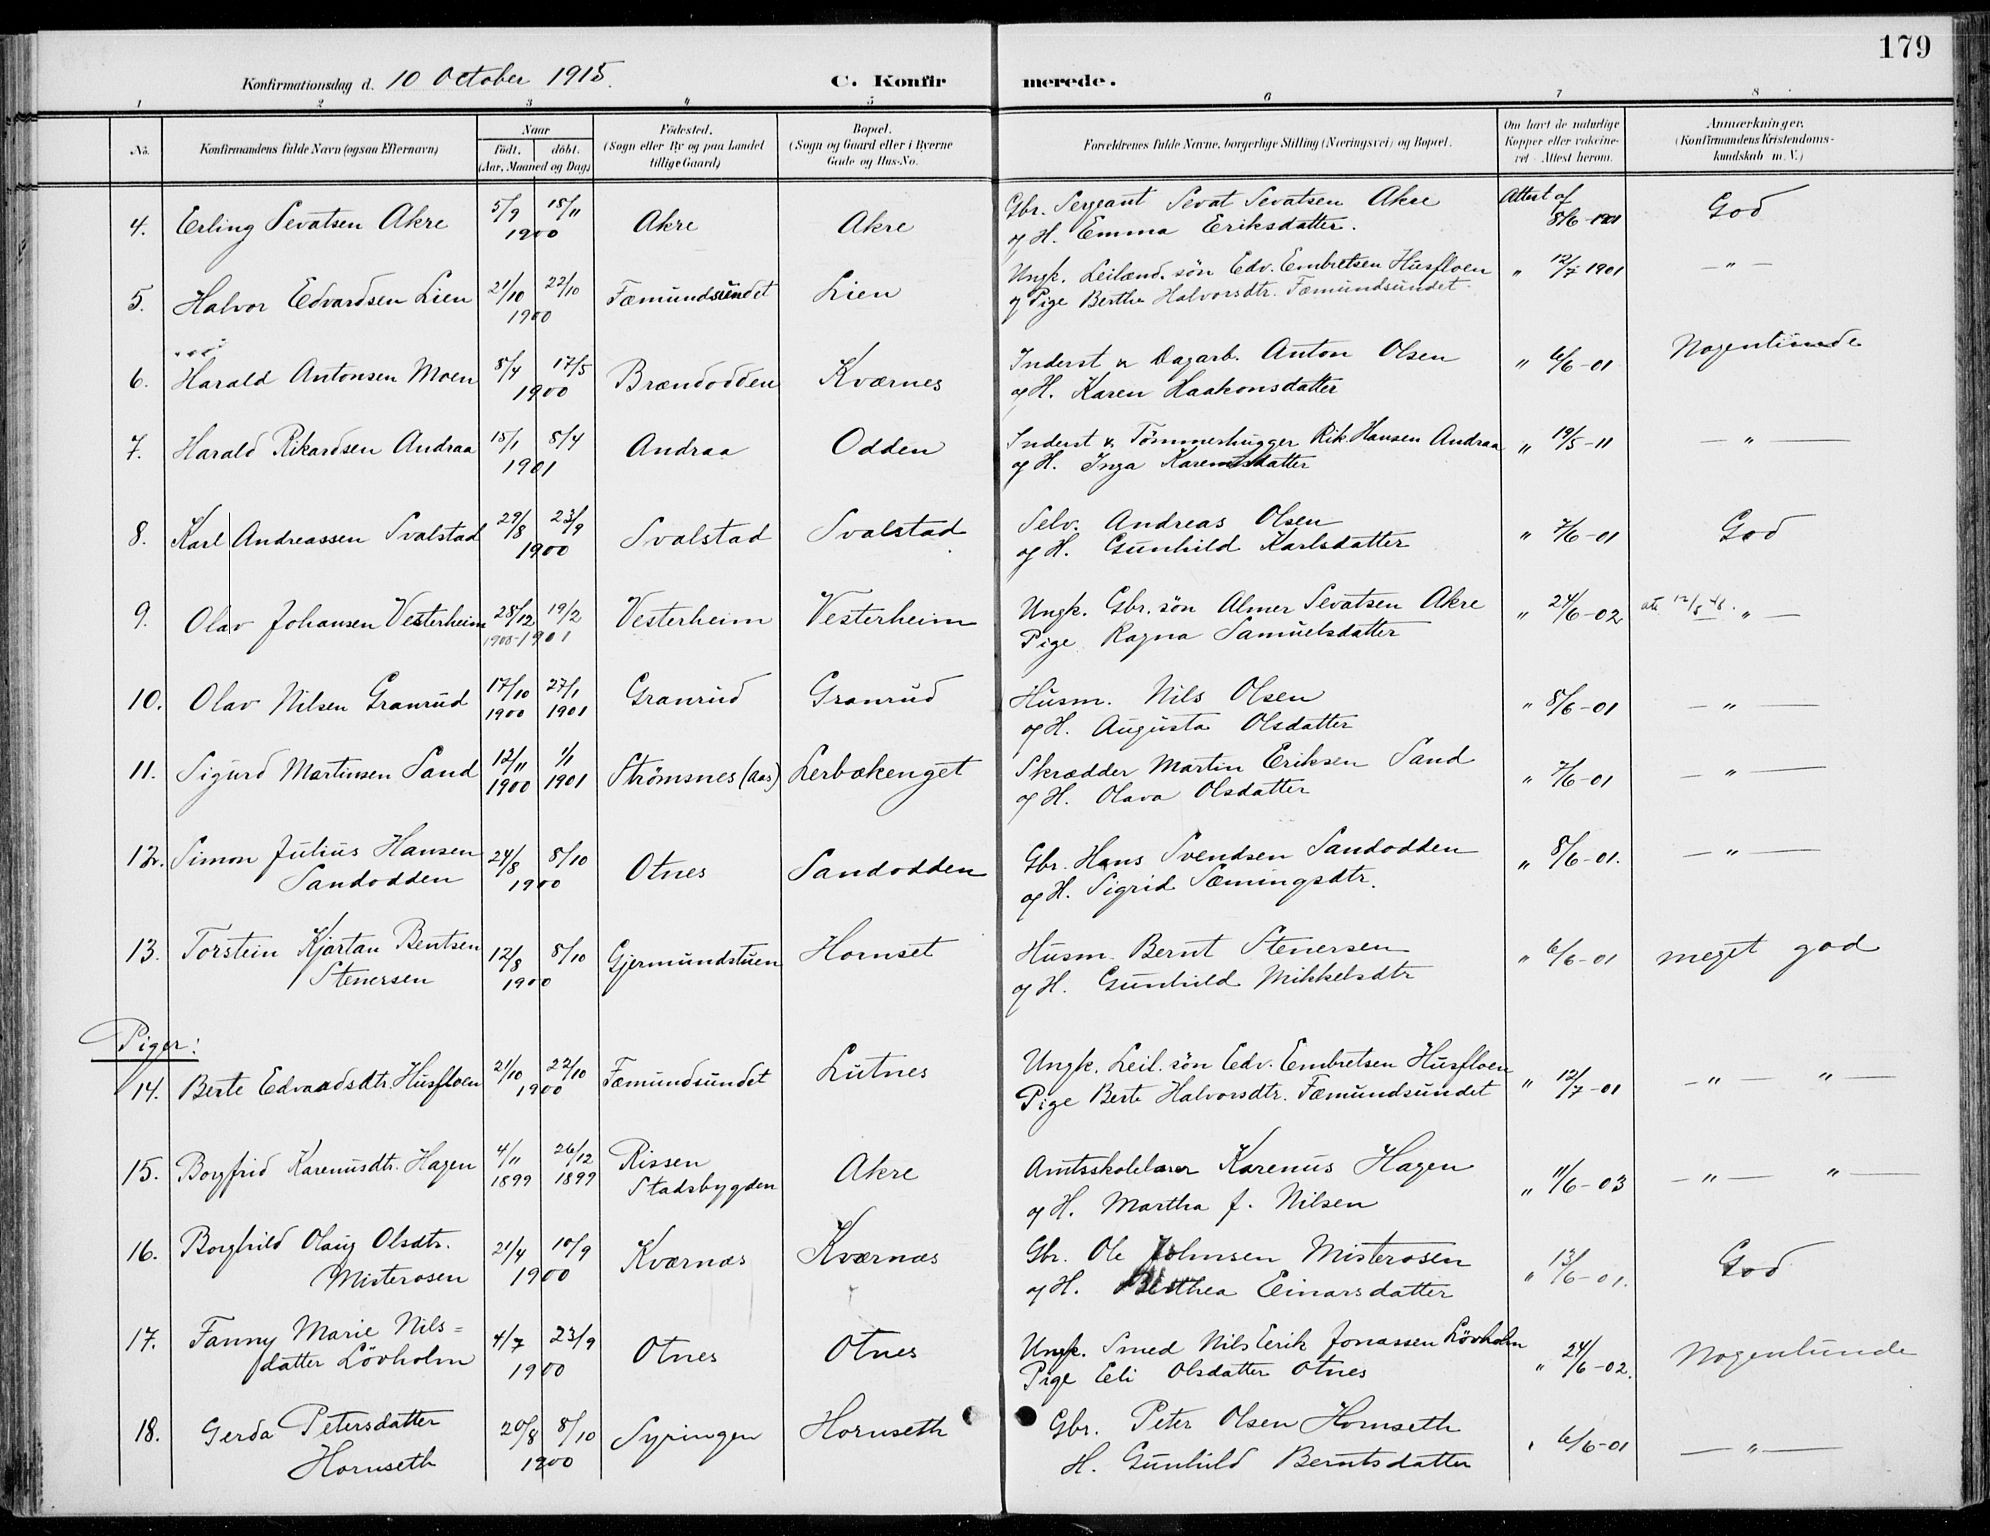 179
Konfirmationsdag d. 10 October 1915.
C. Konfirmerede.
1 2 3 4 5 6 7 8
No.
Konfirmandens fulde Navn (ogsaa Efternavn)
Naar
födt. döbt.
(Aar, Maaned og Dag)
Födested.
(Sogn eller By og paa Landet
tillige Gaard)
Bopæl.
(Sogn og Gaard eller i Byerne
Gade og Hus-No.
Forældrenes fulde Navne, borgerlige Stilling (Næringsvei) og Bopæl.
Om havt de naturlige
Kopper eller vakcine-
ret - Attest herom.
Anmærkninger.
(Konfirmandens Kristendoms-
kundskab m. V.)
4. Erling Sevatsen Akre 5/9 18/11 1900 Akre Akre
Gbr. Sergeant Sevat Sevatsen Akre
og H. Emma Eriksdatter.
Attest af
8/6-1901 God
5. Halvor Edvardsen Lien 21/10 22/10 1900 Fæmundsundet Lien
Ungk. Leilænd. sön Edv. Embretsen Husfloen
og Pige Berthe Halvorsdtr. Fæmundsundet.
" 12/7 1901 — " —
6. Harald Antonsen Moen 8/4 17/5 1900 Brændodden Kværnes
Inderst & Dagarb. Anton Olsen
og H. Karen Haakonsdatter
" 6/6-01 Nogenlunde
7. Harald Rikardsen Andraa 15/1 8/4 1901 Andraa Odden
Inderst & Tömmerhugger Rik. Hansen Andraa
og H. Inga Karenusdatter
" 19/5-11 — " —
8. Karl Andreassen Svalstad 29/8 23/9 1900 Svalstad Svalstad
Selv. Andreas Olsen
og H. Gunhild Karlsdatter
" 7/6-01 God
9. Olav Johansen Vesterheim 28/12 19/2 1900-1901 Vesterheim Vesterheim
Ungk. Gbr. sön Almer Sevatsen Akre
Pige Ragna Samuelsdatter
" 24/6-02 " —
10. Olav Nilsen Granrud 17/10 1900 27/1 1901 Granrud Granrud
Husm. Nils Olsen
og H. Augusta Olsdatter
" 8/6-01 — " —
11. Sigurd Martinsen Sand 12/11 1900 1/1 1901 Strömsnes (Aas) Lerbækenget
Skrædder Martin Eriksen Sand
og H. Olava Olsdatter
" 7/6-01 — " —
12. Simon Julius Hansen
Sandodden 24/8 8/10 1900 Otnes Sandodden
Gbr. Hans Svendsen Sandodden
og H. Sigrid Sæmingsdtr.
" 8/6-01. — " —
13. Torstein Kjartan Bentsen
Stenersen 12/8 8/10 1900 Gjermundstuen Hornset
Husm. Bernt Stenersen
og H. Gunhild Mikkelsdtr
" 6/6-01 meget god
Piger:
14. Berte Edvardsdtr. Husfloen 21/10 22/10 1900 Fæmundsundet Lutnes
Ungk. Leil. sön Edv. Embretsen Husfloen
Pige Berte Halvorsdtr. Fæmundsundet
" 12/7-01 — " — " —
15. Borgfrid Karenusdtr. Hagen 4/11 1899 26/12 1899 Rissen
Stadsbygden Akre
Amtsskolelærer Karenus Hagen
og H. Martha f. Nilsen
" 11/6-03 — " — " —
16. Borghild Olaug Olsdtr.
Misterosen 21/4 10/9 1900 Kværnæs Kværnæs
Gbr. Ole Johnsen Misterosen
og H. Berthea Einarsdatter
" 13/6-01. God
17. Fanny Marie Nils=
datter Lövholm 4/7 23/9 1900 Otnes Otnes
Ungk. Smed Nils Erik Jonassen Lövholm
Pige Eli Olsdatter Otnes
" 24/6-02. Nogenlunde
18. Gerda Petersdatter
Hornseth 20/8 8/10 1900 Syringen Hornseth
Gbr. Peter Olsen Hornseth
H. Gunhild Berntsdatter
" 6/6-01 — " —